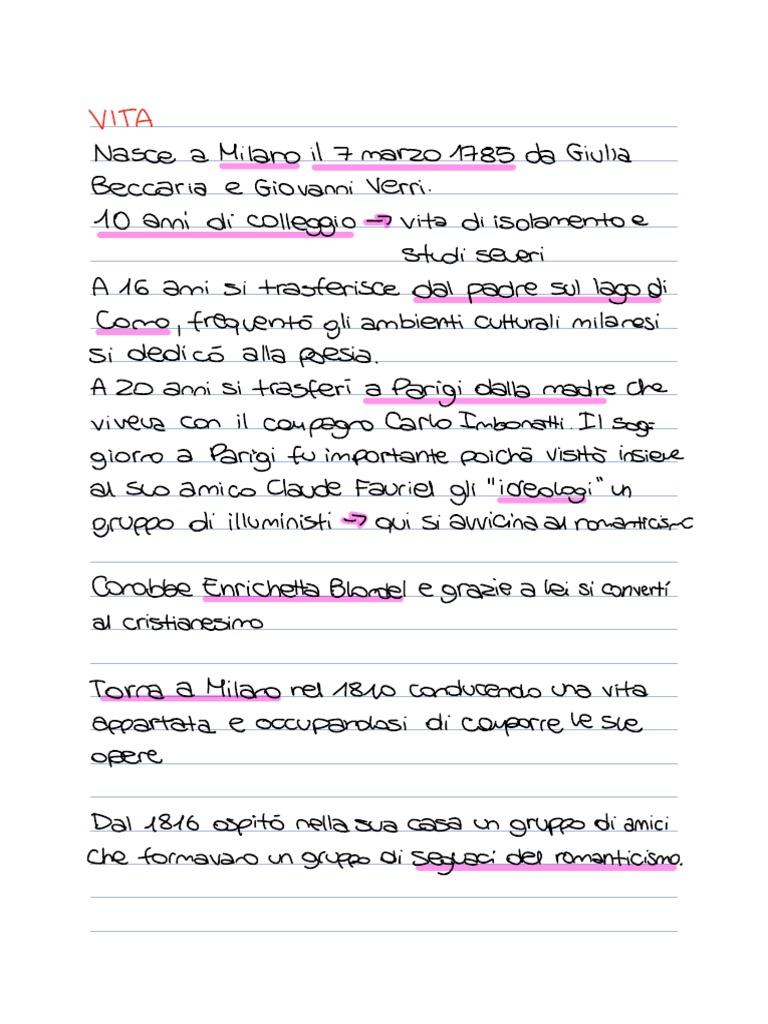 VITA
Nasce a Milano il 7 marzo 1785 da Giulia
Beccaria e Giovanni Verri.
10 anni di colleggio → vita di isolamento e
studi severi
A 16 anni si trasferisce dal padre sul lago di
Como, frequentò gli ambienti culturali milanesi
si dedicò alla poesia.
A 20 anni si trasferì a Parigi dalla madre che
viveva con il compagno Carlo Imbonatti. Il sog-
giorno a Parigi fu importante poichà visitò insieme
al suo amico Claude Fauriel gli "ideologi" un
gruppo di illuministi → qui si avvicina al romanticismo
Conobbe Enrichetta Blondel e grazie a lei si convertì
al cristianesimo
Torna a Milano nel 1810 conducendo una vita
appartata e occupandosi di comporre le sue
opere
Dal 1816 ospitò nella sua casa un gruppo di amici
che formavano un gruppo di seguaci del romanticismo.